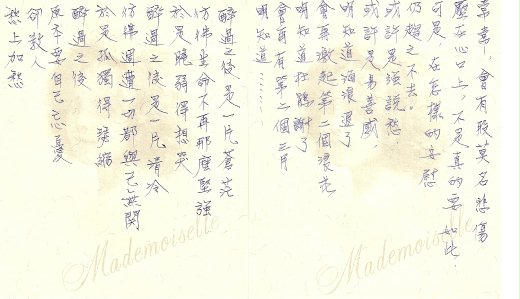 常常，會有股莫名悲傷
壓在心口上，不是真的要如此，
可是，在怎樣的安慰
仍趕之不去。
或許是強說愁，
或許是易善感，
明知道海浪退了
會再激起第二個浪花
明知道杜鵑謝了
會再有第二個三月
明知道……
醉過之後是一片蒼茫
彷彿生命不再那麼堅強
於是脆弱得想哭
醉過之後是一片清冷
彷彿週遭一切都與己無関
於是孤獨得
醉過之後
原本要自己忘憂
卻教人
愁上加愁
Mademoiselle
Mademoiselle